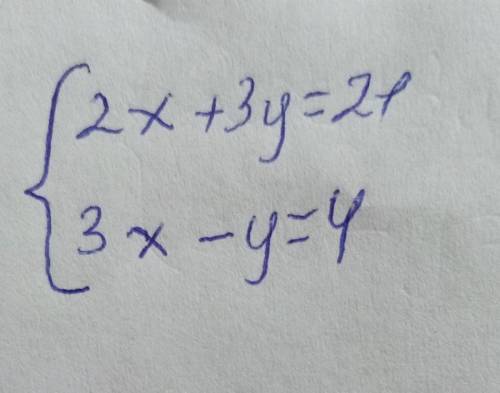 2x+3y=21
3x-y=4